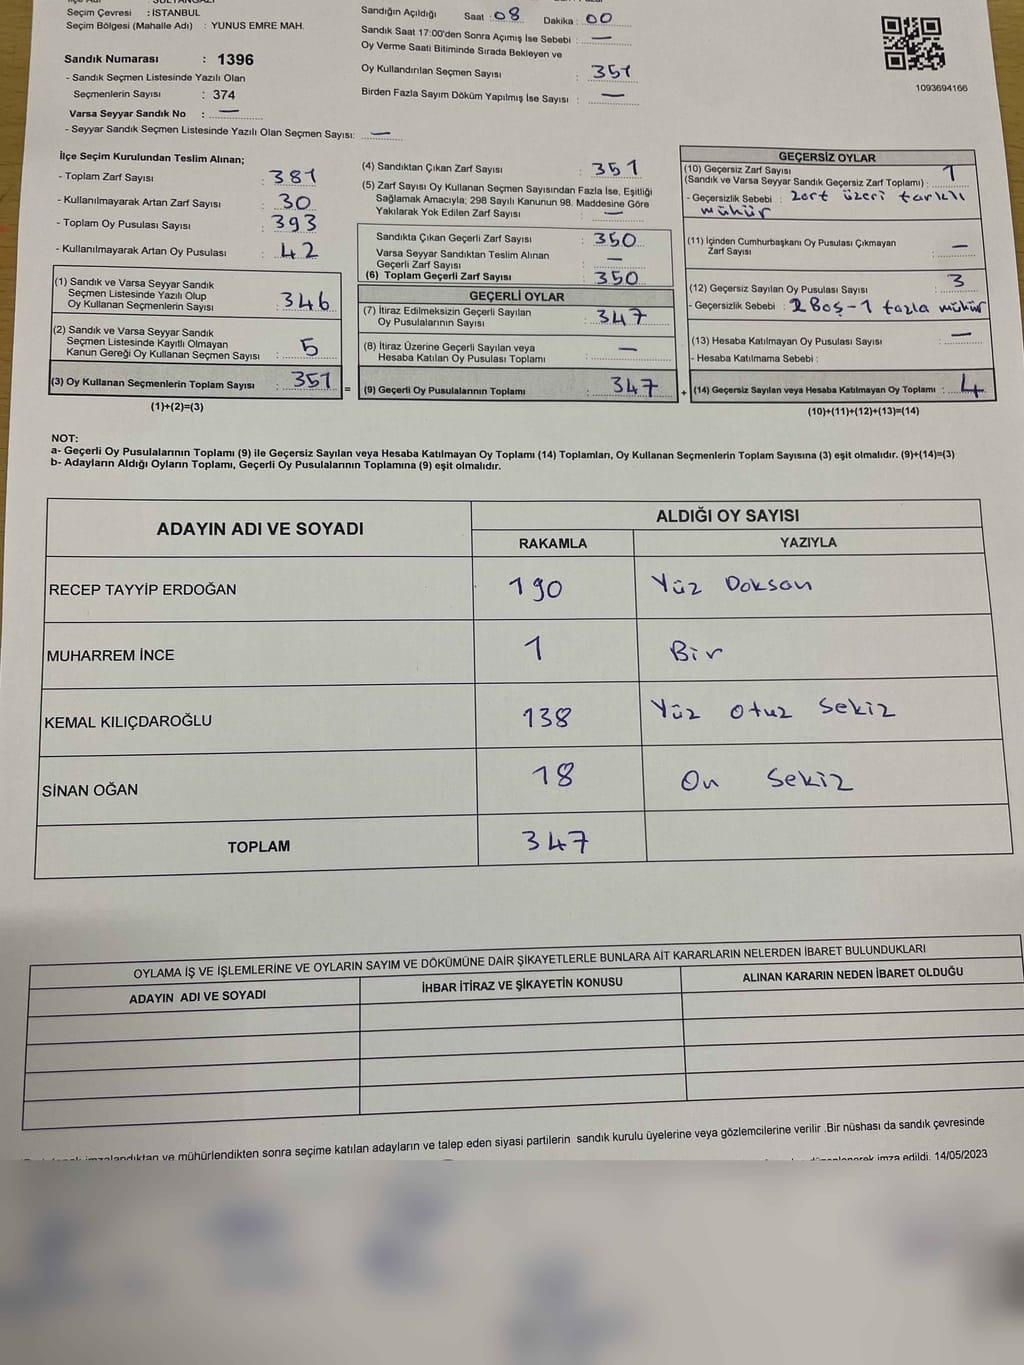 Seçim Çevresi : İSTANBUL
Seçim Bölgesi (Mahalle Adı) : YUNUS EMRE MAH.
Sandık Numarası : 1396
- Sandık Seçmen Listesinde Yazılı Olan
Seçmenlerin Sayısı : 374
Varsa Seyyar Sandık No : —
- Seyyar Sandık Seçmen Listesinde Yazılı Olan Seçmen Sayısı: —
Sandığın Açıldığı Saat : 08 Dakika : 00
Sandık Saat 17:00'den Sonra Açımış İse Sebebi : —
Oy Verme Saati Bitiminde Sırada Bekleyen ve
Oy Kullandırılan Seçmen Sayısı : 351
Birden Fazla Sayım Döküm Yapılmış İse Sayısı : —
1093694166
İlçe Seçim Kurulundan Teslim Alınan;
- Toplam Zarf Sayısı : 381
- Kullanılmayarak Artan Zarf Sayısı : 30
- Toplam Oy Pusulası Sayısı : 393
- Kullanılmayarak Artan Oy Pusulası : 42
(1) Sandık ve Varsa Seyyar Sandık
Seçmen Listesinde Yazılı Olup
Oy Kullanan Seçmenlerin Sayısı : 346
(2) Sandık ve Varsa Seyyar Sandık
Seçmen Listesinde Kayıtlı Olmayan
Kanun Gereği Oy Kullanan Seçmen Sayısı : 5
(3) Oy Kullanan Seçmenlerin Toplam Sayısı : 351
(1)+(2)=(3)
(4) Sandıktan Çıkan Zarf Sayısı : 351
(5) Zarf Sayısı Oy Kullanan Seçmen Sayısından Fazla İse, Eşitliği
Sağlamak Amacıyla; 298 Sayılı Kanunun 98. Maddesine Göre
Yakılarak Yok Edilen Zarf Sayısı : —
Sandıkta Çıkan Geçerli Zarf Sayısı : 350
Varsa Seyyar Sandıktan Teslim Alınan
Geçerli Zarf Sayısı : —
(6) Toplam Geçerli Zarf Sayısı : 350
GEÇERLİ OYLAR
(7) İtiraz Edilmeksizin Geçerli Sayılan
Oy Pusulalarının Sayısı : 347
(8) İtiraz Üzerine Geçerli Sayılan veya
Hesaba Katılan Oy Pusulası Toplamı : —
= (9) Geçerli Oy Pusulalarının Toplamı : 347
GEÇERSİZ OYLAR
(10) Geçersiz Zarf Sayısı
(Sandık ve Varsa Seyyar Sandık Geçersiz Zarf Toplamı) : 1
- Geçersizlik Sebebi : zarf üzeri farklı
mühür
(11) İçinden Cumhurbaşkanı Oy Pusulası Çıkmayan
Zarf Sayısı : —
(12) Geçersiz Sayılan Oy Pusulası Sayısı : 3
- Geçersizlik Sebebi : 2 Boş - 1 fazla mühür
(13) Hesaba Katılmayan Oy Pusulası Sayısı : —
- Hesaba Katılmama Sebebi :
+ (14) Geçersiz Sayılan veya Hesaba Katılmayan Oy Toplamı : 4
(10)+(11)+(12)+(13)=(14)
NOT:
a- Geçerli Oy Pusulalarının Toplamı (9) ile Geçersiz Sayılan veya Hesaba Katılmayan Oy Toplamı (14) Toplamları, Oy Kullanan Seçmenlerin Toplam Sayısına (3) eşit olmalıdır. (9)+(14)=(3)
b- Adayların Aldığı Oyların Toplamı, Geçerli Oy Pusulalarının Toplamına (9) eşit olmalıdır.
ADAYIN ADI VE SOYADI
ALDIĞI OY SAYISI
RAKAMLA YAZIYLA
RECEP TAYYİP ERDOĞAN 190 Yüz Doksan
MUHARREM İNCE 1 Bir
KEMAL KILIÇDAROĞLU 138 Yüz otuz sekiz
SİNAN OĞAN 18 On sekiz
TOPLAM 347
OYLAMA İŞ VE İŞLEMLERİNE VE OYLARIN SAYIM VE DÖKÜMÜNE DAİR ŞİKAYETLERLE BUNLARA AİT KARARLARIN NELERDEN İBARET BULUNDUKLARI
ADAYIN ADI VE SOYADI İHBAR İTİRAZ VE ŞİKAYETİN KONUSU ALINAN KARARIN NEDEN İBARET OLDUĞU
ve mühürlendikten sonra seçime katılan adayların ve talep eden siyasi partilerin sandık kurulu üyelerine veya gözlemcilerine verilir .Bir nüshası da sandık çevresinde
imza edildi. 14/05/2023